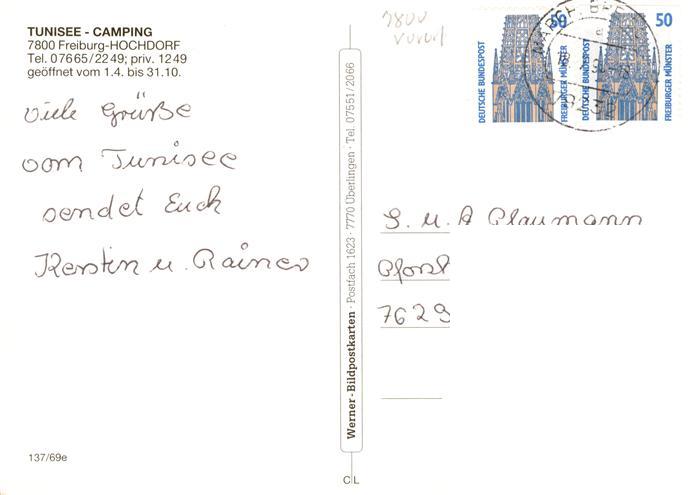 TUNISEE - CAMPING
7800 Freiburg-HOCHDORF
Tel. 07665/2249; priv. 1249
geöffnet vom 1.4. bis 31.10.
Viele Grüße
vom Tunisee
sendet Euch
Kerstin u. Rainer
137/69e
Werner-Bildpostkarten · Postfach 1623 · 7770 Überlingen · Tel. 07551/2066
CL
7800
50
DEUTSCHE BUNDESPOST
FREIBURGER MÜNSTER
50
DEUTSCHE BUNDESPOST
FREIBURGER MÜNSTER
S. u. A Plaumann
7629